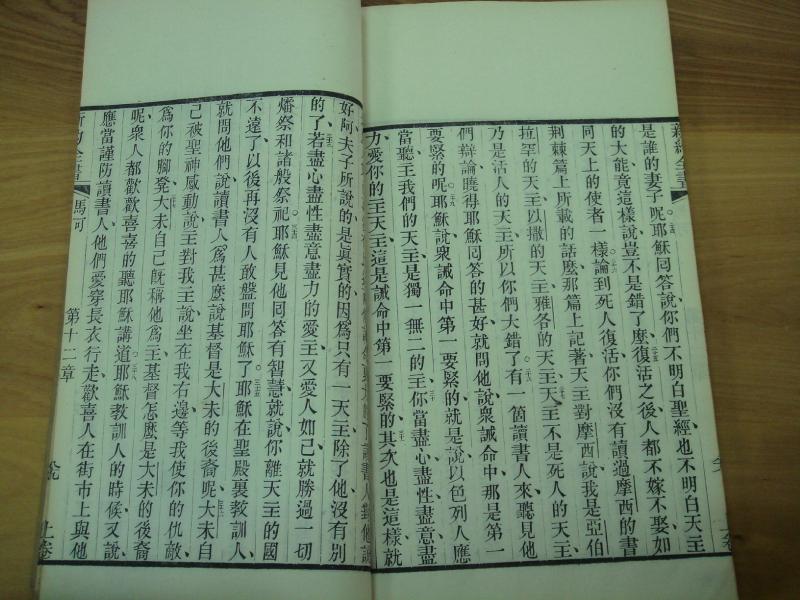 新約全書
是誰的妻子呢耶穌回答說你們不明白聖經也不明白天主
的大能竟這樣說豈不是錯了麼復活之後人都不嫁不娶如
同天上的使者一樣論到死人復活你們沒有讀過摩西的書
荊棘篇上所載的話麼那篇上記著天主對摩西說我是亞伯
拉罕的天主以撒的天主雅各的天主天主不是死人的天主
乃是活人的天主所以你們大錯了有一箇讀書人來聽見他
們辯論曉得耶穌回答的甚好就問他說衆誡命中那是第一
要緊的呢耶穌說衆誡命中第一要緊的就是說以色列人應
當聽主我們的天主是獨一無二的主你當盡心盡性盡意盡
力愛你的主天主這是誡命中第一要緊的其次也是這樣就
好阿夫子所說的是眞實的因爲只有一天主除了他沒有別
的了若盡心盡性盡意盡力的愛主又愛人如己就勝過一切
燔祭和諸般祭祀耶穌見他回答有智慧就說你離天主的國
不遠了以後再沒有人敢盤問耶穌了耶穌在聖殿裏教訓人
就問他們說讀書人爲甚麼說基督是大未的後裔呢大未自
己被聖神感動說主對我主說坐在我右邊等我使你的仇敵
爲你的腳凳大未自己旣稱他爲主基督怎麼是大未的後裔
呢衆人都歡歡喜喜的聽耶穌講道耶穌教訓人的時候又說
應當謹防讀書人他們愛穿長衣行走歡喜人在街市上與他
新約全書 馬可 第十二章 上卷